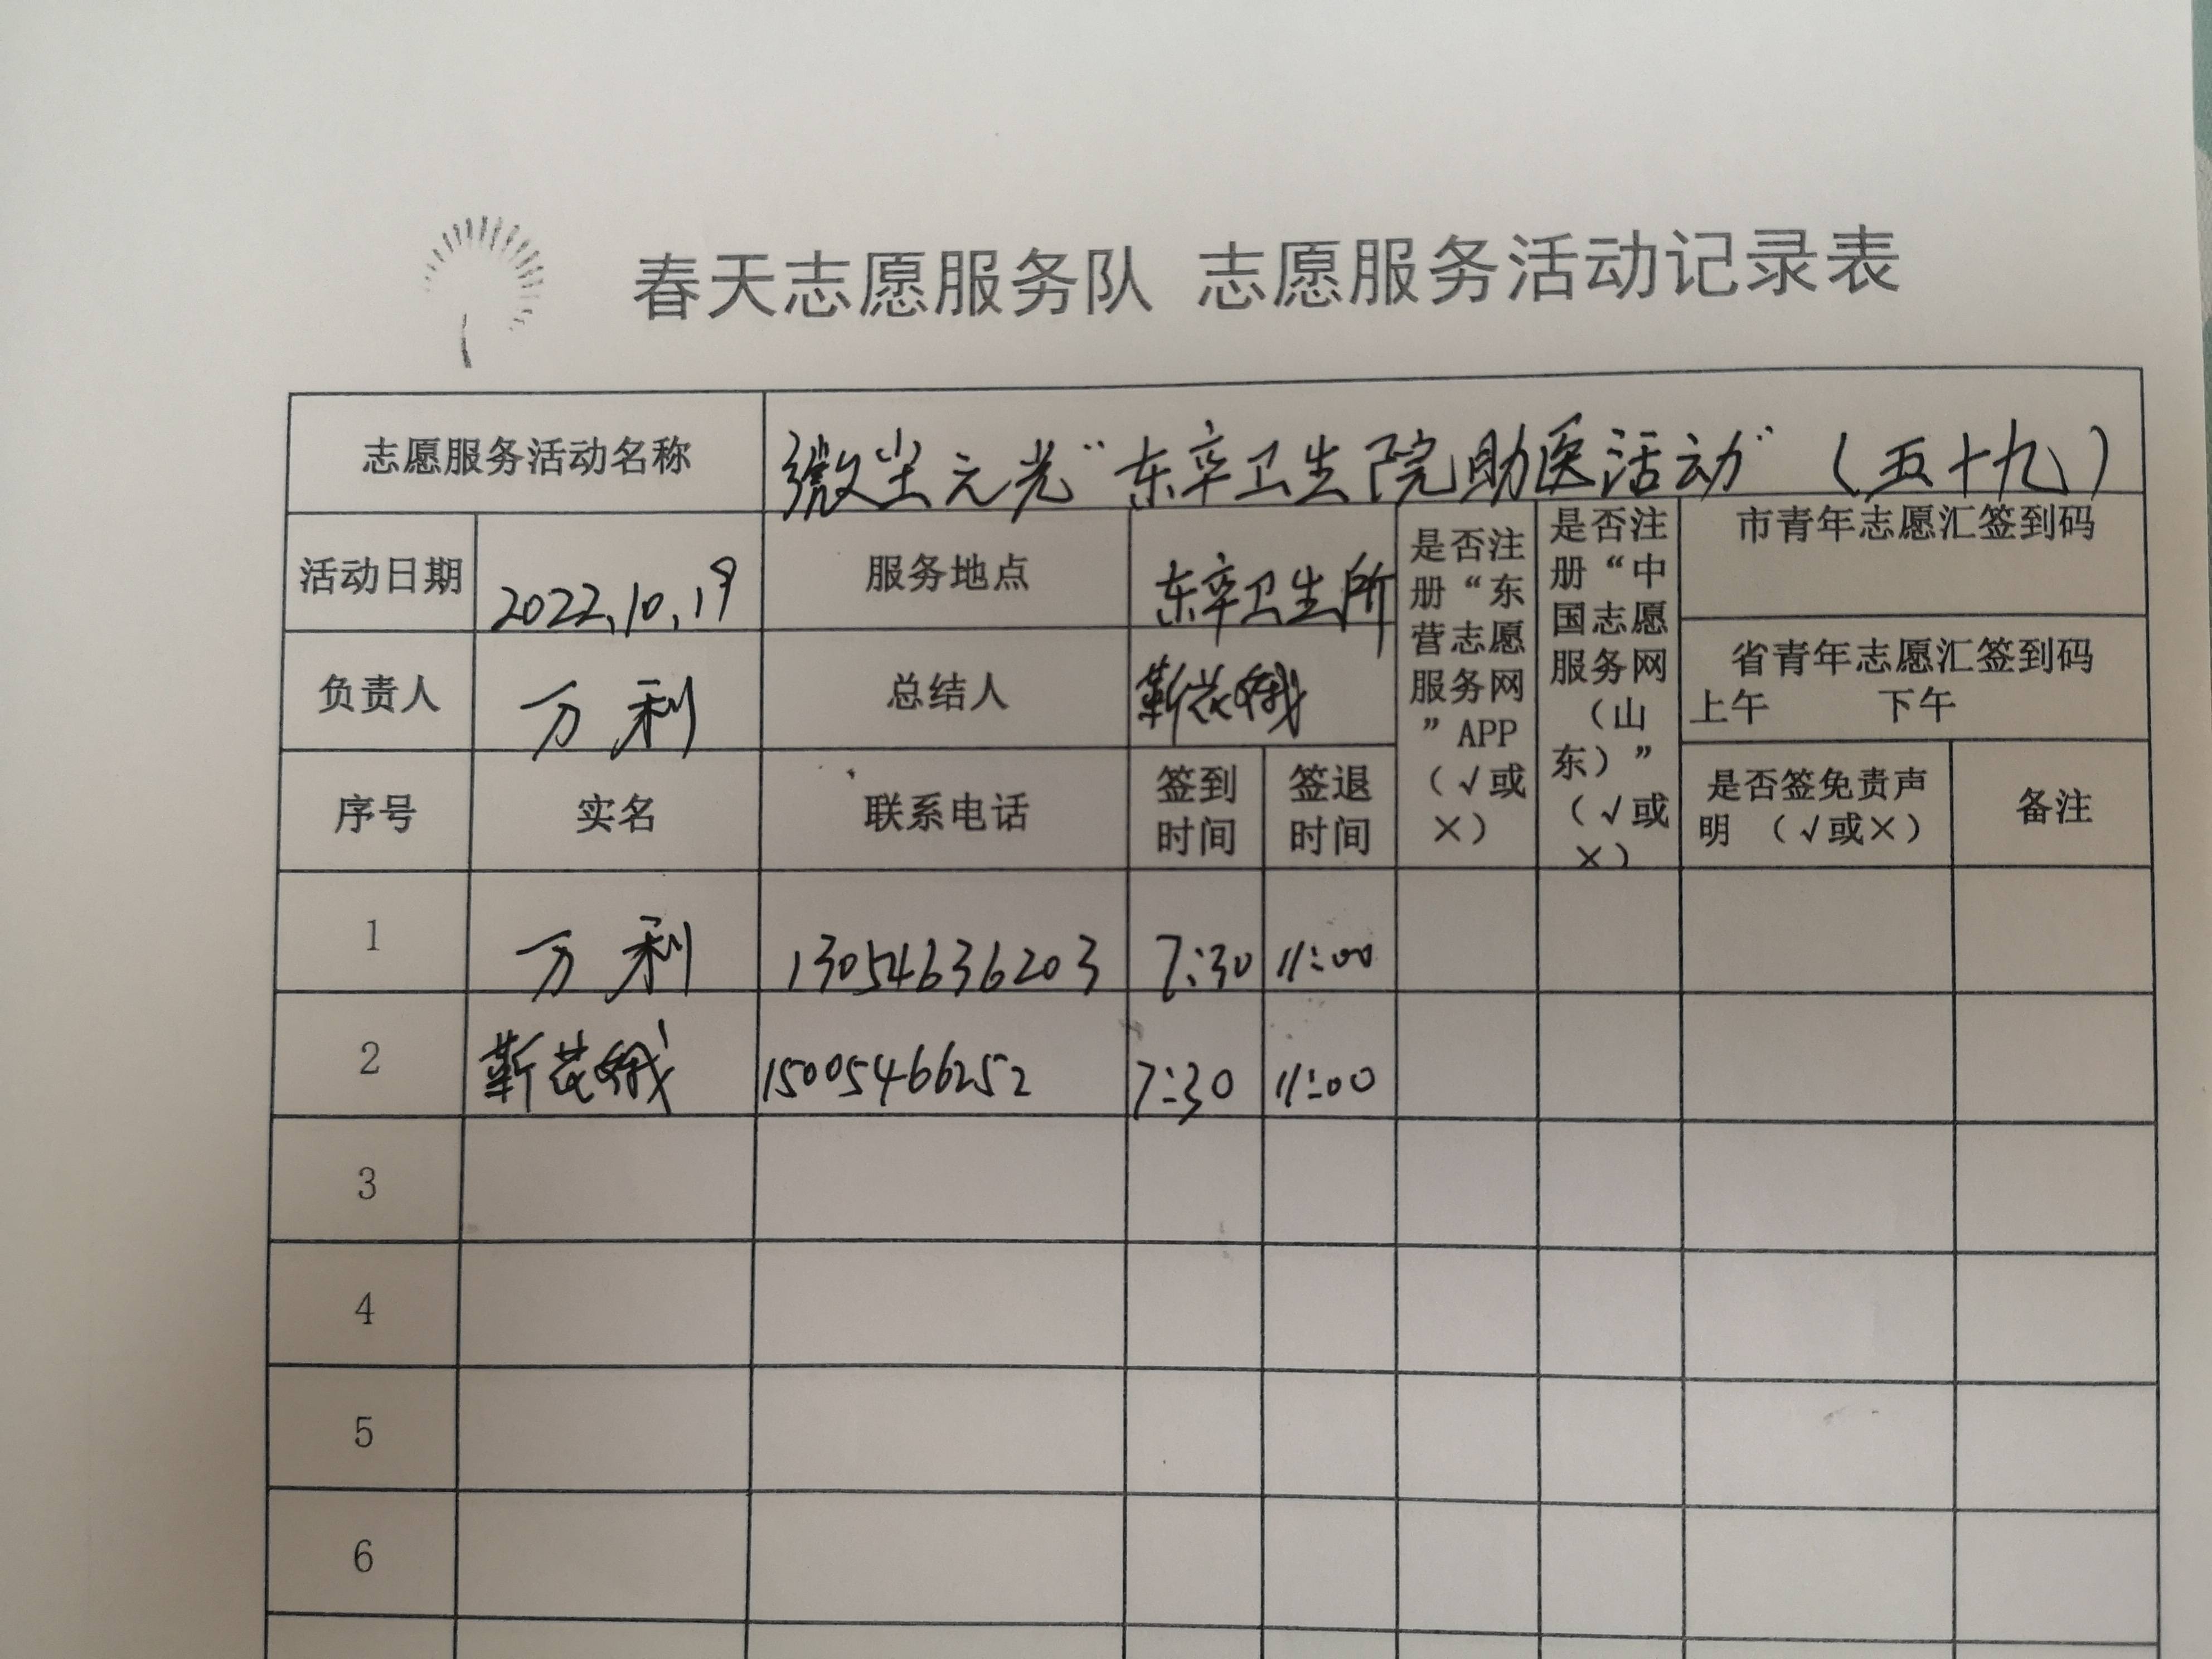 春天志愿服务队 志愿服务活动记录表
志愿服务活动名称 微尘元光“东辛卫生院助医活动”（五十九）
活动日期 2022.10.19 服务地点 东辛卫生所
是否注册“东营志愿服务网”APP（√或×）
是否注册“中国志愿服务网（山东）”（√或×）
市青年志愿汇签到码
负责人 万利 总结人 靳花娥
省青年志愿汇签到码
上午 下午
序号 实名 联系电话 签到时间 签退时间 是否签免责声明 （√或×） 备注
1 万利 13054636203 7:30 11:00
2 靳花娥 15005466252 7:30 11:00
3
4
5
6